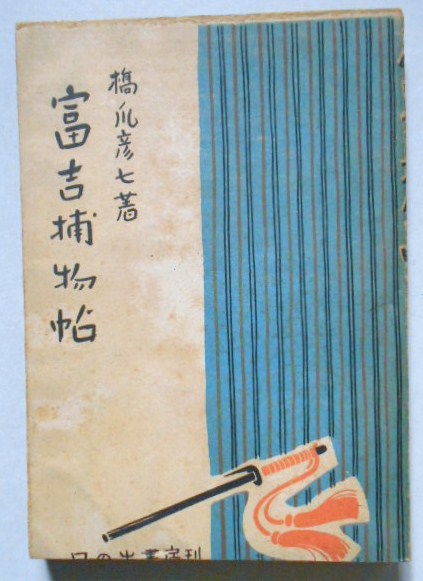 橋爪彦七著
富吉捕物帖
日の出書房刊